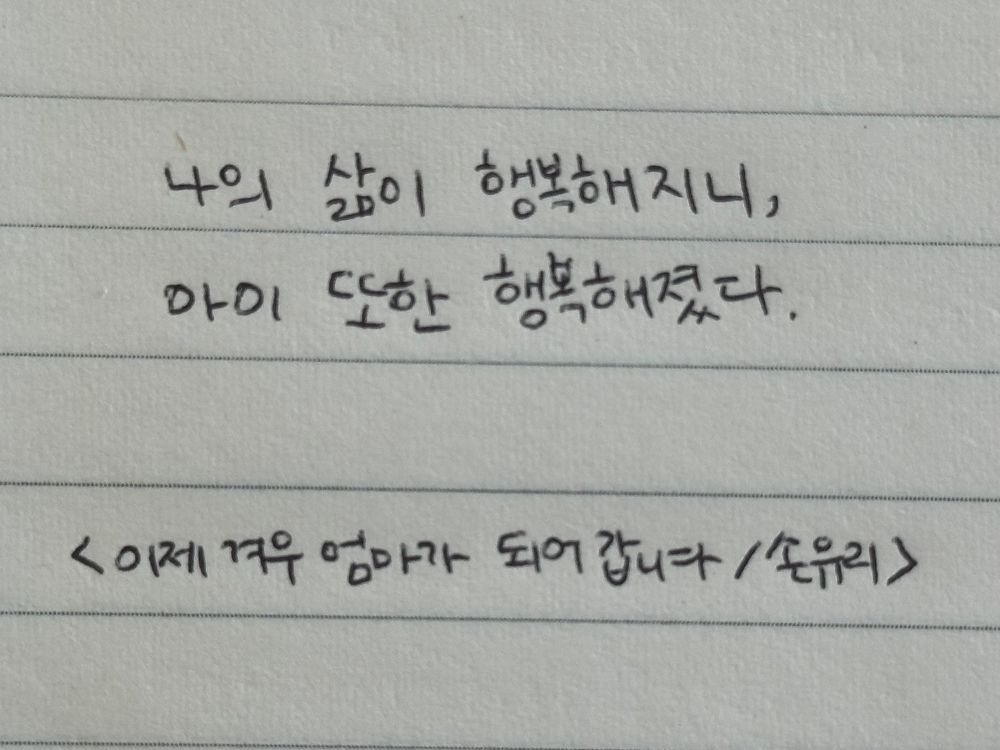 나의 삶이 행복해지니,
아이 또한 행복해졌다.
<이제 겨우 엄마가 되어 갑니다 / 손유리>